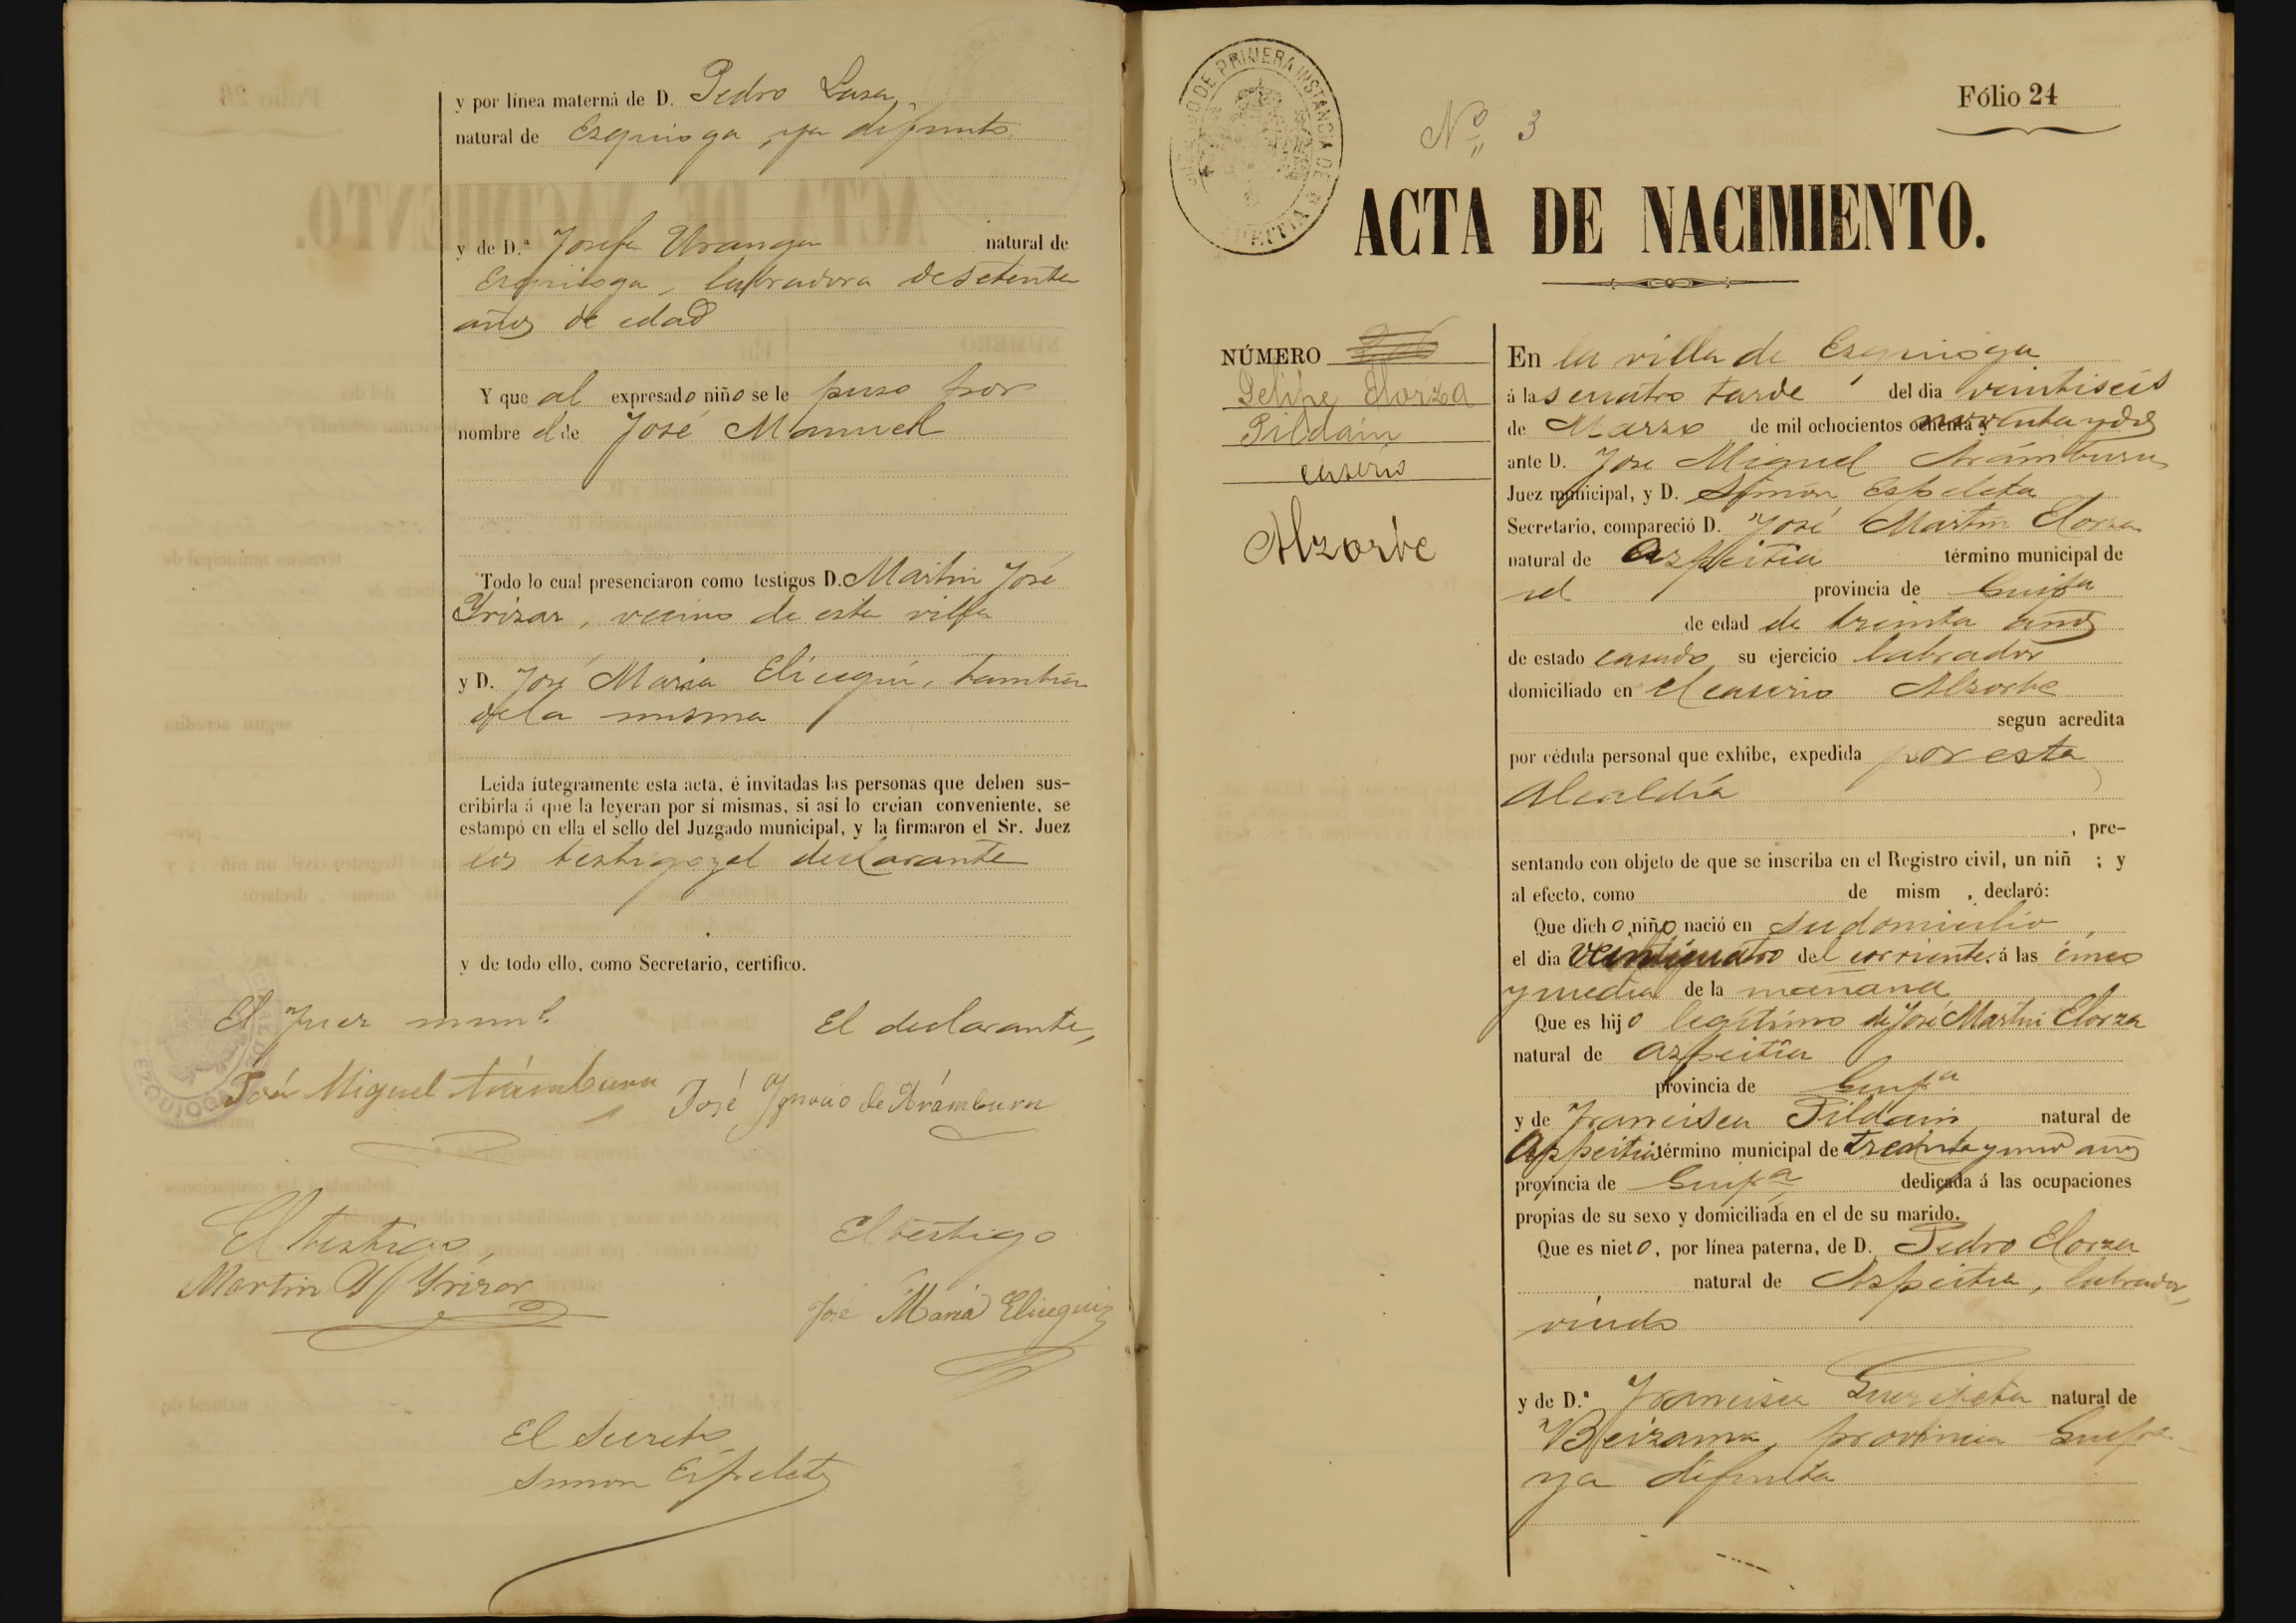 y por línea materna de D. Pedro Lasa,
natural de Ezquioga, ya difunto.
y de D.ª Josefa Uranga natural de
Ezquioga, labradora de setenta
años de edad
Y que al expresado niño se le puso por
nombre el de José Manuel
Todo lo cual presenciaron como testigos D. Martin José
Yrizar, vecino de esta villa
y D. José Maria Elicegui, tambien
de la misma
Leida íntegramente esta acta, é invitadas las personas que deben sus-
cribirla á que la leyeran por sí mismas, si así lo creian conveniente, se
estampó en ella el sello del Juzgado municipal, y la firmaron el Sr. Juez
los testigos y el declarante
y de todo ello, como Secretario, certifico.
El Juez mun.l
El declarante,
José Miguel Arámburu
José Ygnacio de Arámburu
El testigo,
Martin J Yrizar
El testigo
José Maria Elicegui
El Secreto
Simon Espeleta
JUZGADO DE PRIMERA INSTANCIA DE AZPEITIA
Nº 3
Fólio 24
ACTA DE NACIMIENTO.
NÚMERO
Felipe Elorza
Pildain
caserio
Alzorbe
En la villa de Ezquioga
á las cuatro tarde del dia veintiseis
de Marzo de mil ochocientos ochenta y noventa y dos
ante D. Jose Miguel Arámburu
Juez municipal, y D. Simón Espeleta
Secretario, compareció D. José Martin Elorza
natural de Azpeitia término municipal de
id provincia de Guip.a
de edad de treinta años
de estado casado su ejercicio labrador
domiciliado en el caserio Alzorbe
segun acredita
por cédula personal que exhibe, expedida por esta
Alcaldía
, pre-
sentando con objeto de que se inscriba en el Registro civil, un niñ ; y
al efecto, como de mism , declaró:
Que dicho niño nació en su domicilio,
el dia veinticuatro del corriente, á las cinco
y media de la mañana
Que es hijo legítimo de José Martin Elorza
natural de Azpeitia
provincia de Guip.a
y de Francisca Pildain natural de
Azpeitia término municipal de treinta y uno años
provincia de Guip.a dedicada á las ocupaciones
propias de su sexo y domiciliada en el de su marido.
Que es nieto, por línea paterna, de D. Pedro Elorza
natural de Azpeitia, labrador,
viudo
y de D.ª Francisca natural de
Beizama, provincia Guip.a
ya difunta